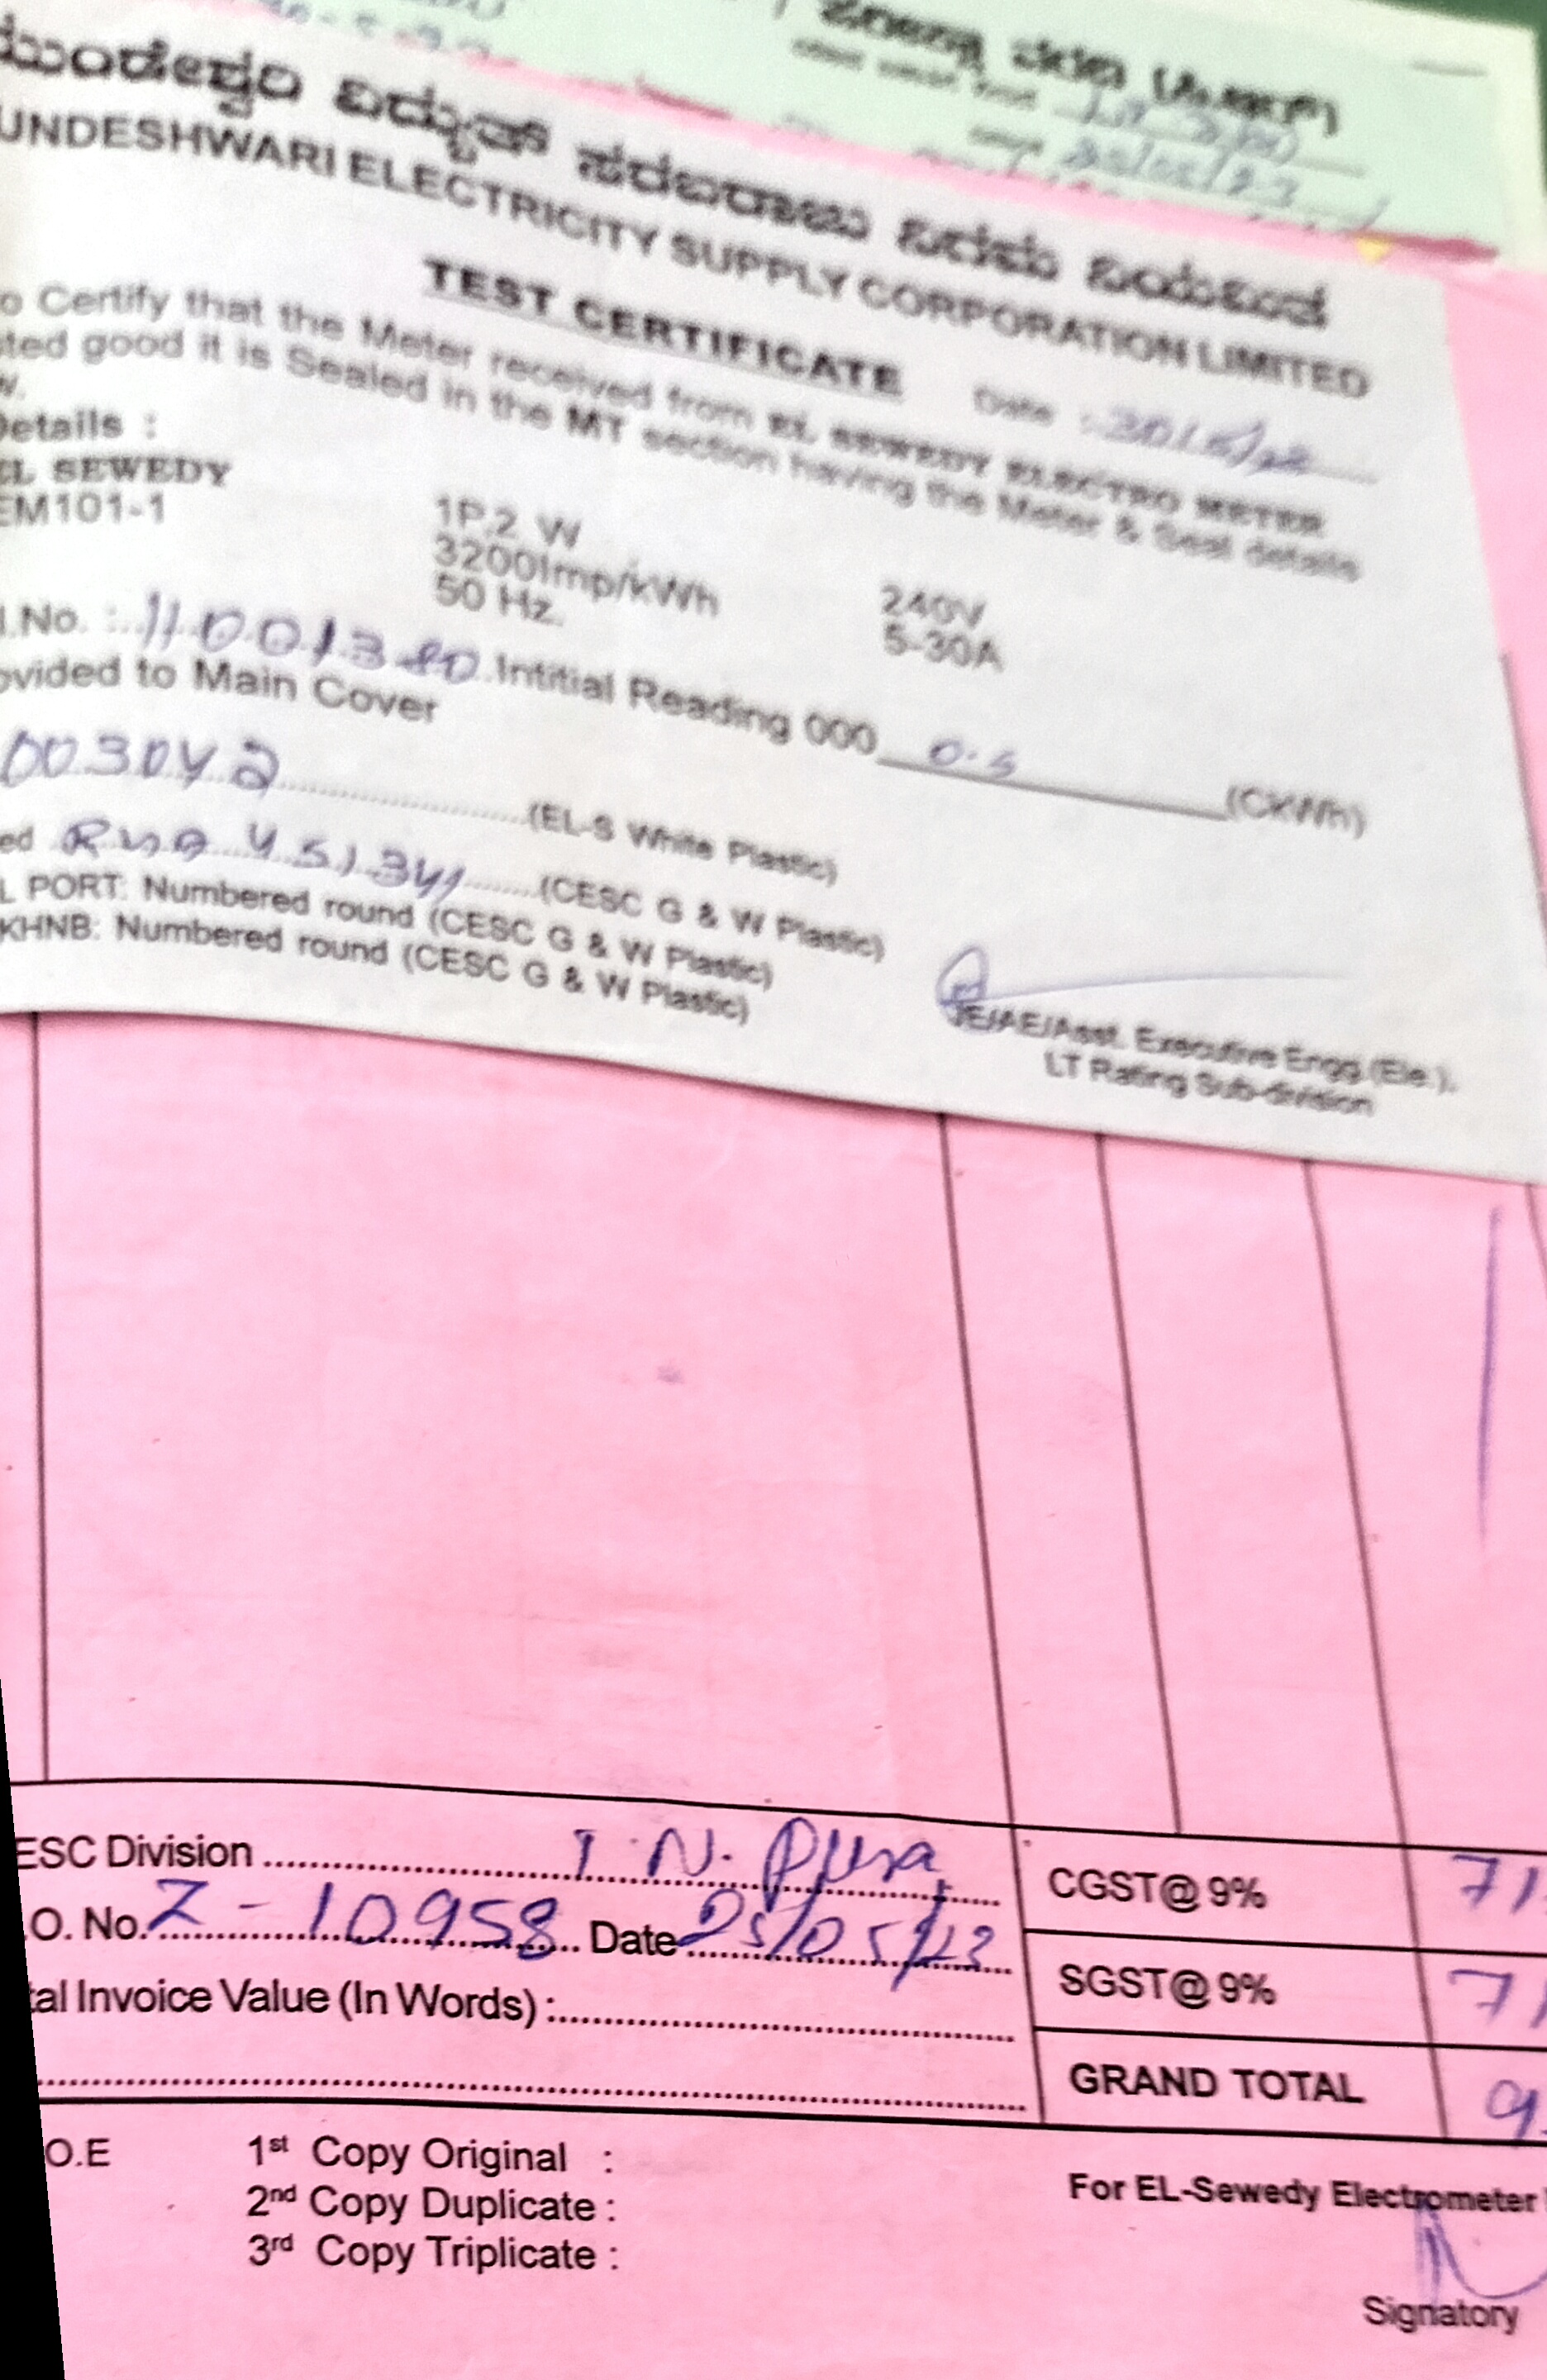 ಪರೀಕ್ಷಾ ವರದಿ
ಮುಂಡೇಶ್ವರಿ ವಿದ್ಯುತ್ ಸರಬರಾಜು ನಿಗಮ ನಿಯಮಿತ
UNDESHWARI ELECTRICITY SUPPLY CORPORATION LIMITED
TEST CERTIFICATE
Date :
o Certify that the Meter received from EL SEWEDY ELECTRO METER
ted good it is Sealed in the MT section having the Meter & Seal details
w.
Details :
EL SEWEDY
EM101-1 1P.2 W 240V
3200Imp/kWh 5-30A
50 Hz.
l.No. : 11001380 Intitial Reading 000 0.5 (CKWh)
ovided to Main Cover
003042 (EL-S White Plastic)
ed 451341 (CESC G & W Plastic)
L PORT: Numbered round (CESC G & W Plastic)
KHNB: Numbered round (CESC G & W Plastic)
JE/AE/Asst. Executive Engg.(Ele.).
LT Rating Sub-division
ESC Division T.N. Pura CGST@ 9% 71
.O. No. Z-10958 Date 25/05/23 SGST@ 9% 71
tal Invoice Value (In Words) :
GRAND TOTAL 9
O.E 1st Copy Original :
2nd Copy Duplicate :
3rd Copy Triplicate :
For EL-Sewedy Electrometer
Signatory